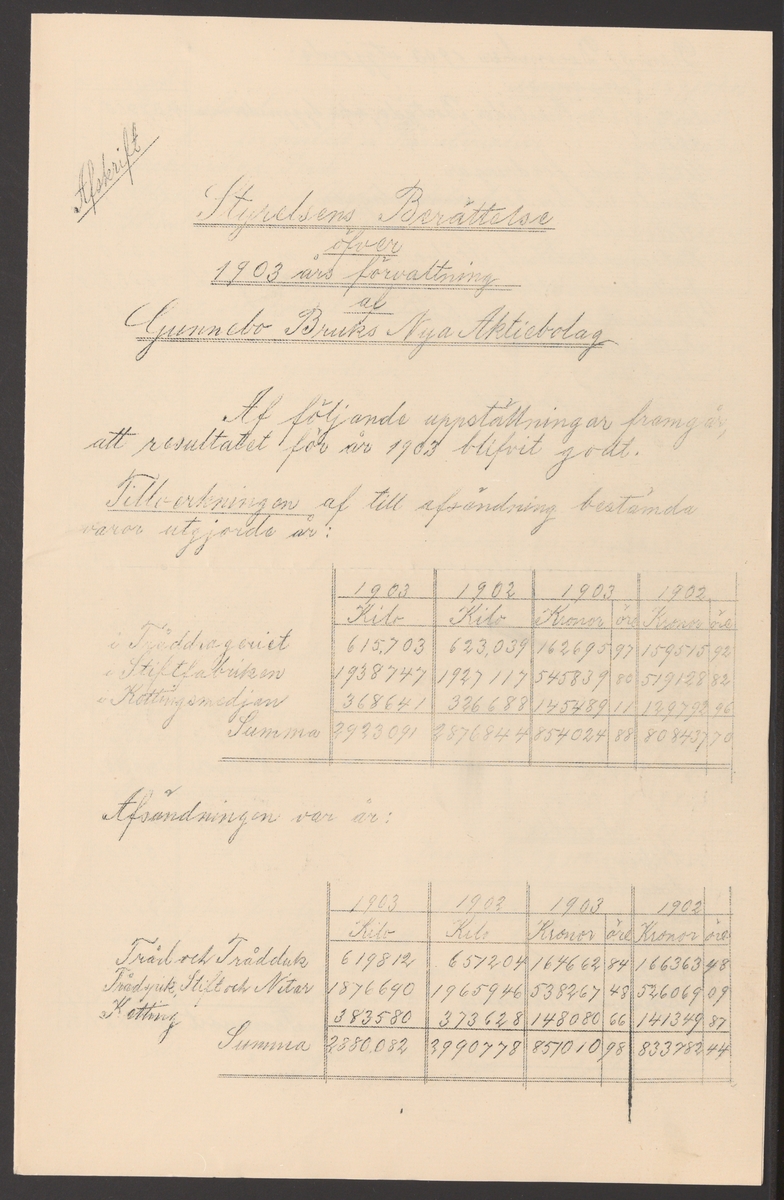 Afskrift
Styrelsens Berättelse
öfver
1903 års förvaltning
af
Gunnebo Bruks Nya Aktiebolag
Af följande uppställningar framgår,
att resultatet för år 1903 blifvit godt.
Tillverkningen af till afsändning bestämda
varor utgjorde år:
1903 1902 1903 1902
Kilo Kilo Kronor öre Kronor öre
i Tråddrageriet 615,703 623,039 162695 97 159515 92
i Stiftfabriken 1938747 1927117 545839 80 519128 82
i Kettingsmedjan 368641 326688 145489 11 129792 96
Summa 2923091 2876844 854024 88 808437 70
Afsändningen var år:
1903 1902 1903 1902
Kilo Kilo Kronor öre Kronor öre
Tråd och Trådduk 619812 651204 164662 84 166363 48
Trådspik, Stift och Nitar 1876690 1965946 538267 48 526069 09
Ketting 383580 373628 148080 66 141349 87
Summa 2880,082 2990778 851010 98 833782 44